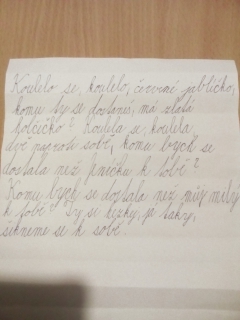 Koulelo se, koulelo, červené jablíčko,
komu ty se dostaneš, má zlatá
holčičko? Koulela se, koulela,
dvě proti sobě, komu bych se
dostala než Jeníčku k tobě?
Komu bych se dostala než můj milý
k tobě? Ty si hezký, já taky,
sekneme se k sobě.